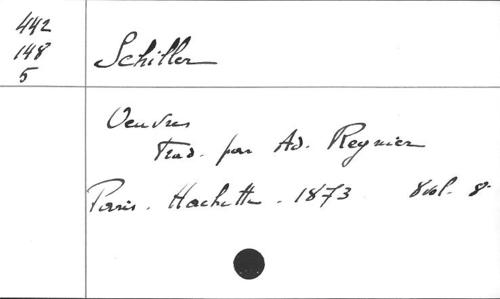 442
148
5
Schiller
Oeuvres
Trad. par Ad. Regnier
Paris. Hachette. 1873 8 vol. 8°